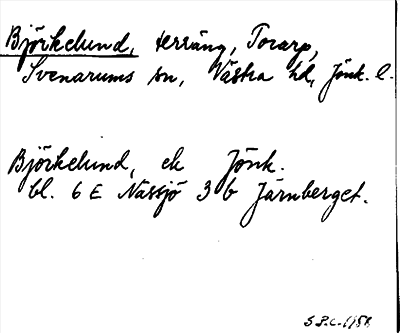 Björkelund, terräng, Torarp,
Svenarums sn, Västra hd, Jönk. l.
Björkelund, ek Jönk.
bl. 6 E Nässjö 3 b Järnberget.
S.P.C. 1958